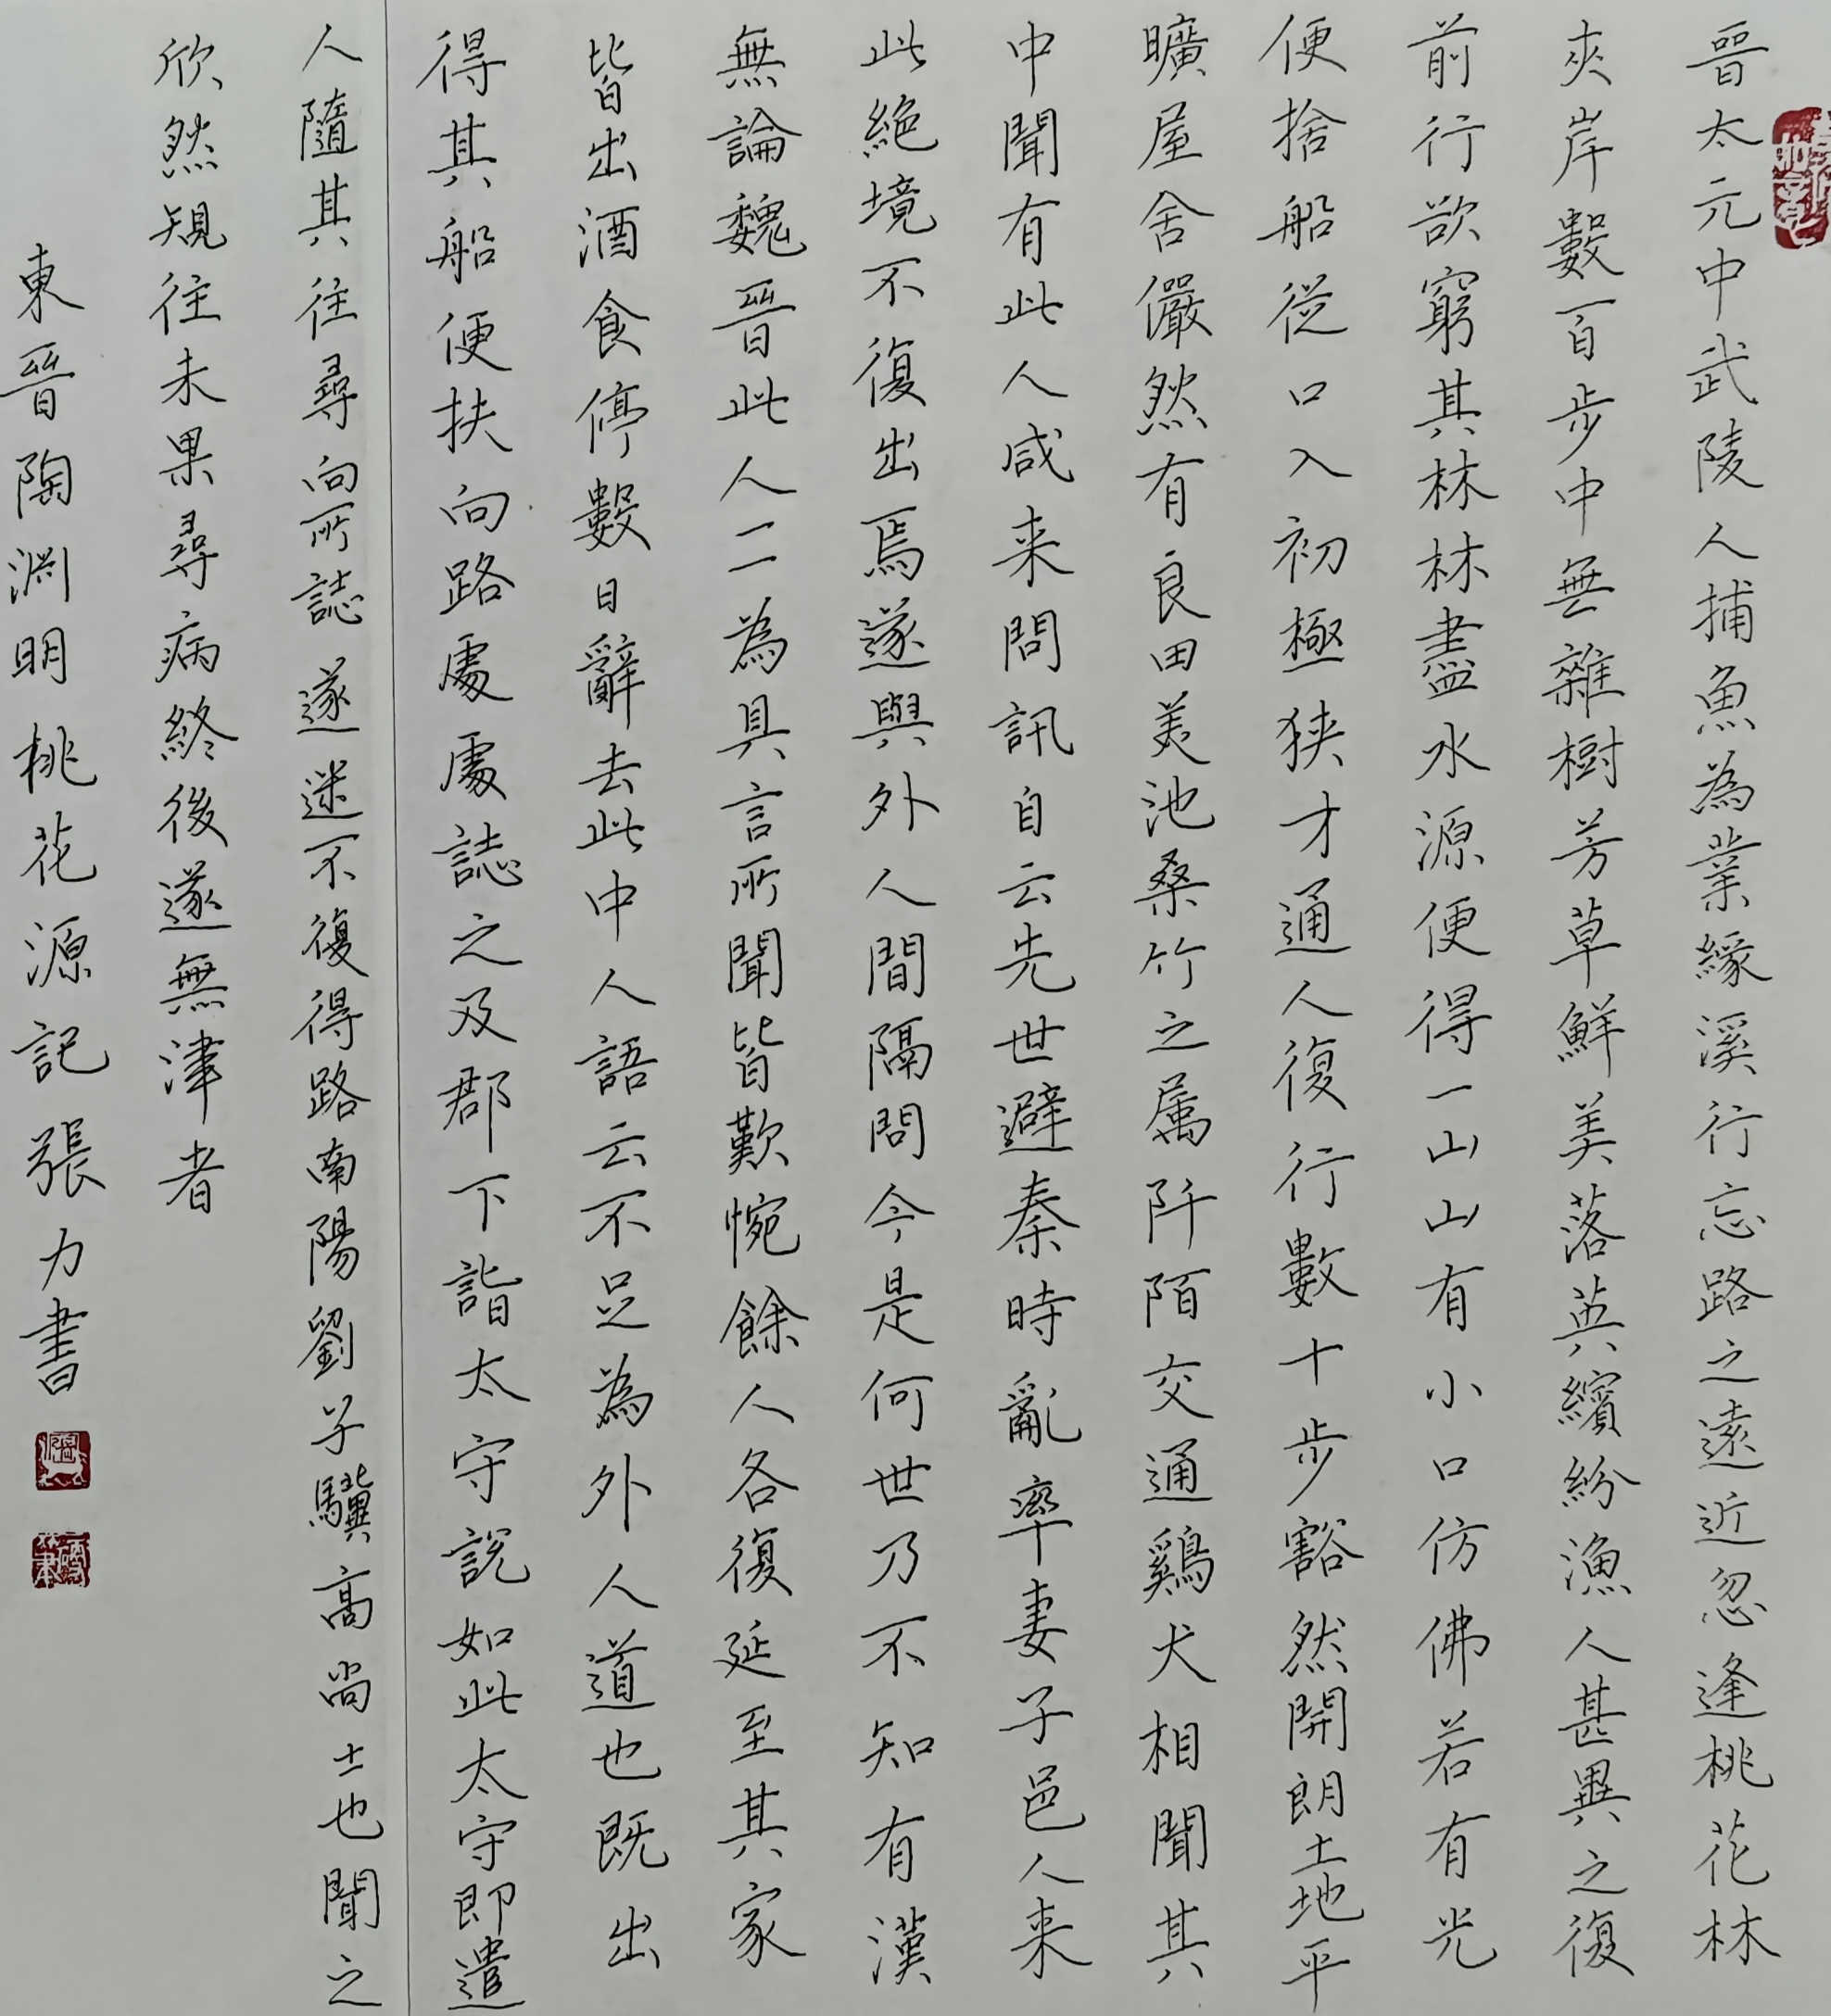 晉太元中武陵人捕魚為業緣溪行忘路之遠近忽逢桃花林
夾岸數百步中無雜樹芳草鮮美落英繽紛漁人甚異之復
前行欲窮其林林盡水源便得一山山有小口仿佛若有光
便捨船從口入初極狹才通人復行數十步豁然開朗土地平
曠屋舍儼然有良田美池桑竹之屬阡陌交通鷄犬相聞其
中聞有此人咸来問訊自云先世避秦時亂率妻子邑人来
此絕境不復出焉遂與外人間隔問今是何世乃不知有漢
無論魏晉此人二為具言所聞皆歎惋餘人各復延至其家
皆出酒食停數日辭去此中人語云不足為外人道也既出
得其船便扶向路處處誌之及郡下詣太守說如此太守即遣
人隨其往尋向所誌遂迷不復得路南陽劉子驥高尚士也聞之
欣然規往未果尋病終後遂無津者
東晉陶淵明桃花源記張力書